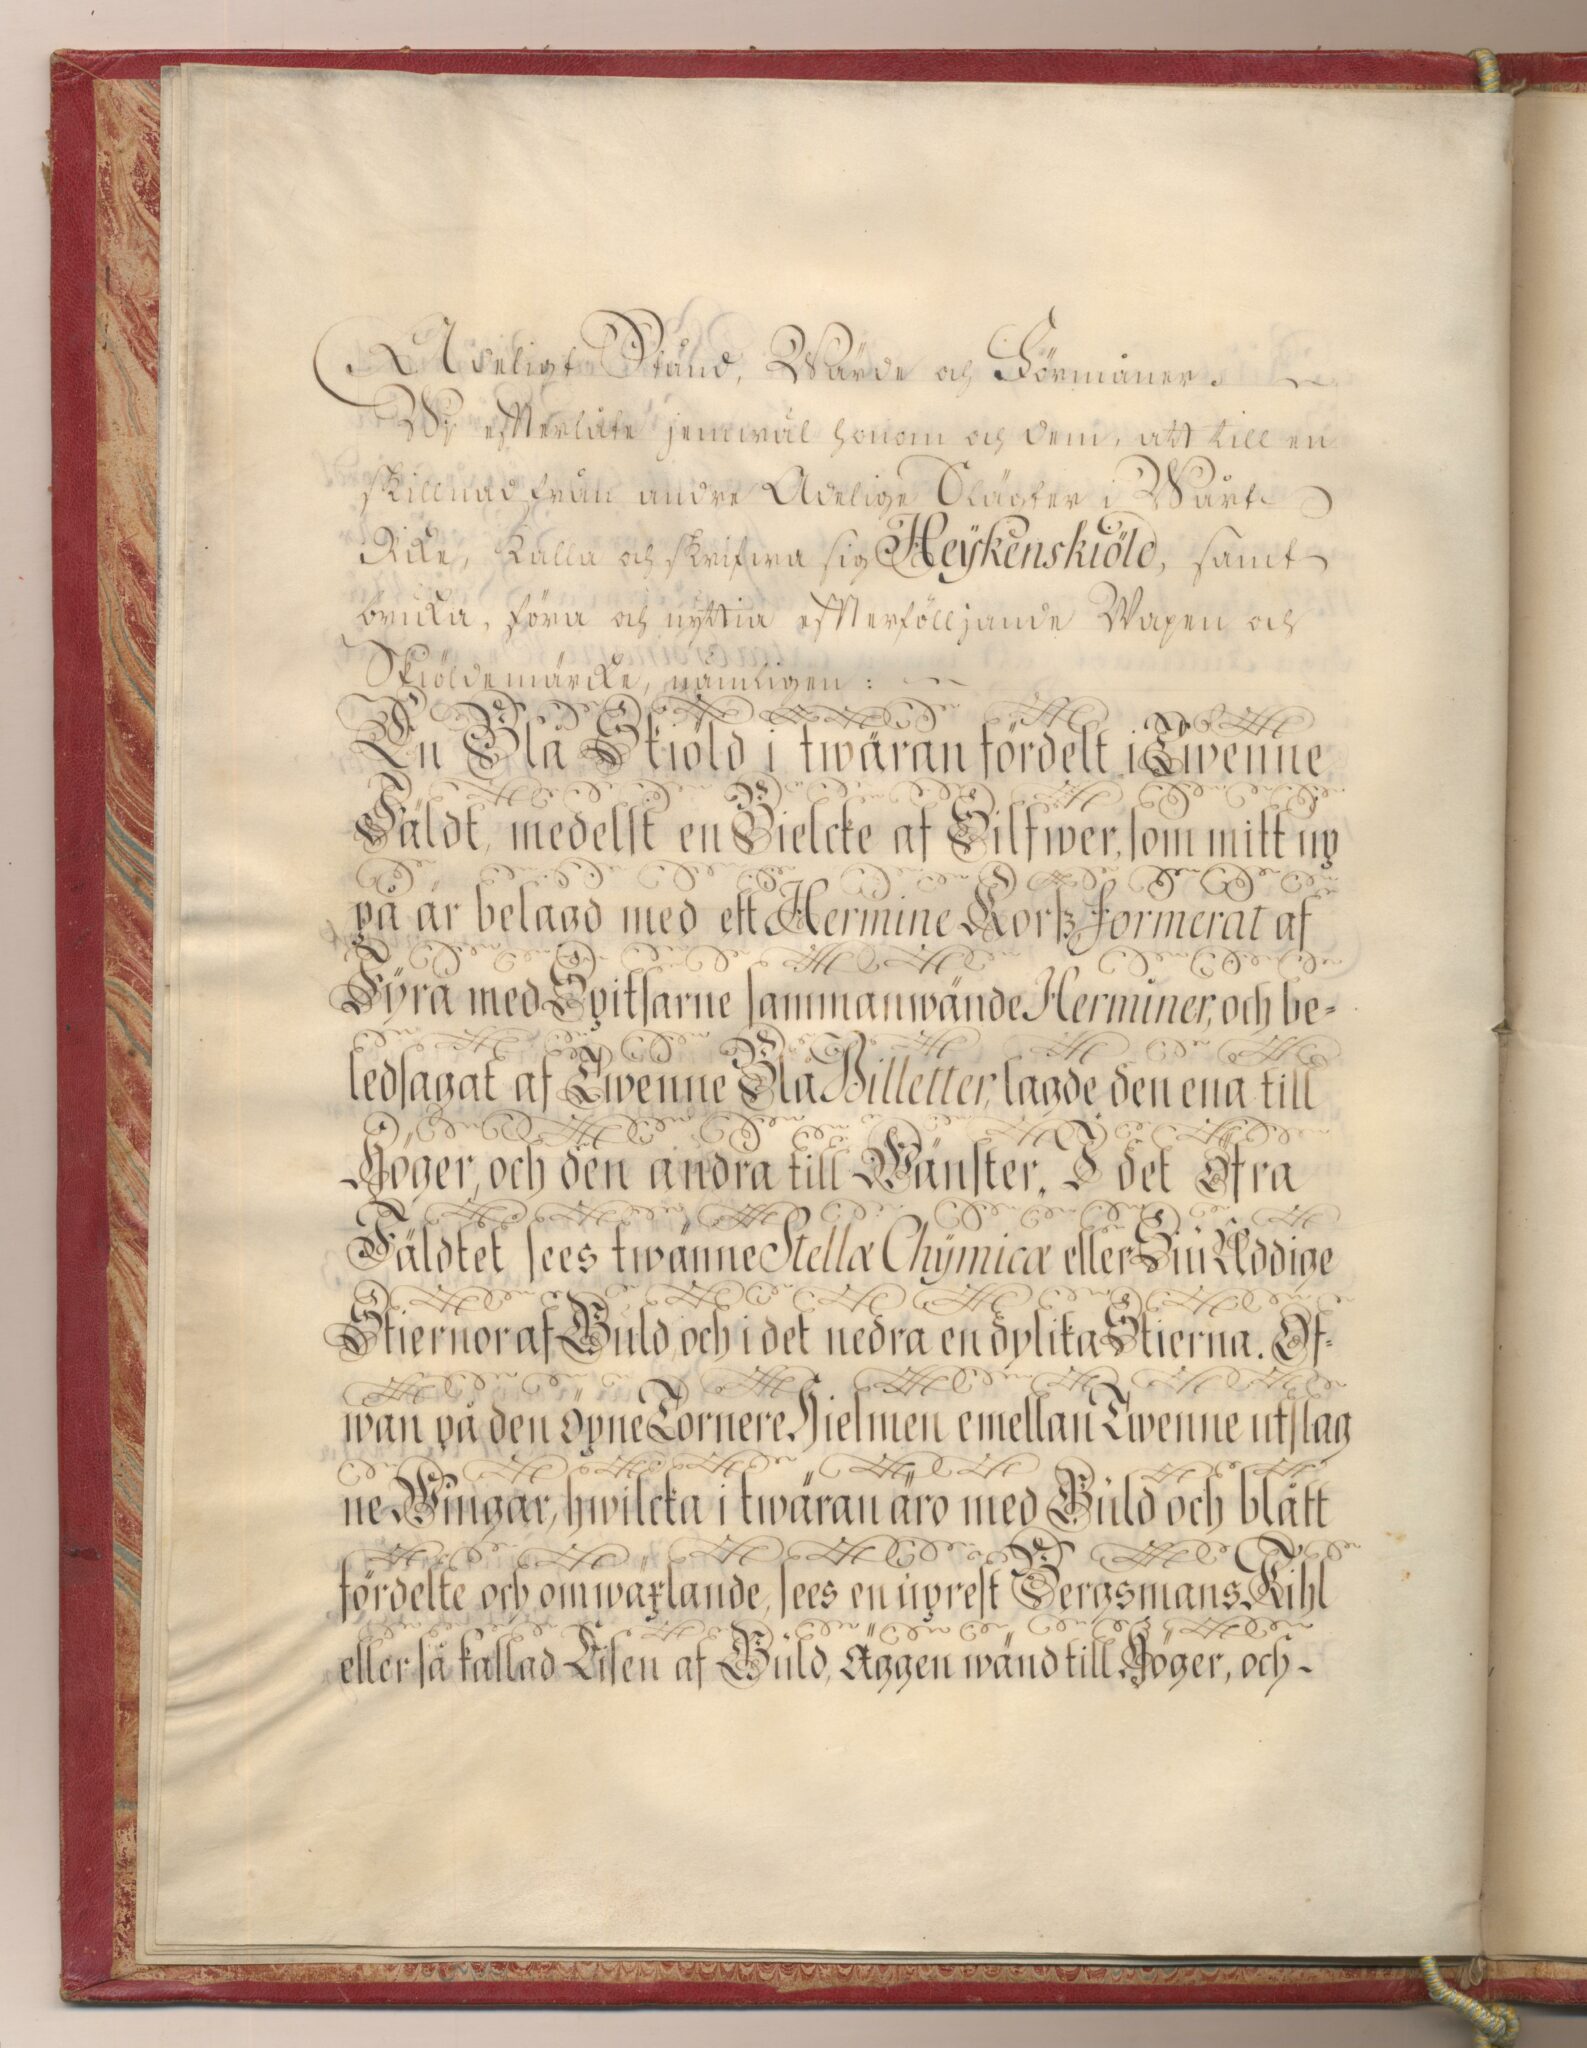 Adeligt Stånd, Wärde och Förmåner.
Wy efterlåte jemwäl honom och dem, att till en
skillnad från andre Adelige Slägter i Wårt
Rike, kalla och skrifwa sig Heÿkenskiöld, samt
bruka, föra och nyttia efterfölljande Wapen och
Skiöldemärcke, nämligen:
En Blå Skiöld i twäran fördelt i Twenne
Fäldt, medelst en Bielcke af Silfwer, som mitt up
på är belagd med ett Hermine Korß, formerat af
Fÿra med Spitsarne sammanwände Herminer, och be-
ledsagat af Twenne Blå Billetter, lagde den ena till
Höger, och den andra till Wänster. I det Öfra
Fäldtet sees twänne Stellæ Chÿmicæ eller Siu Uddige
Stiernor af Guld, och i det nedra en dylika Stierna. Of-
wan på den öpne Tornere Hielmen emellan Twenne utslag
ne Wingar, hwilcka i twäran äro med Guld och blått
fördelte och omwäxlande, sees en uprest Bergsmans Kihl
eller så kallad Eisen af Guld, Äggen wänd till Höger, och